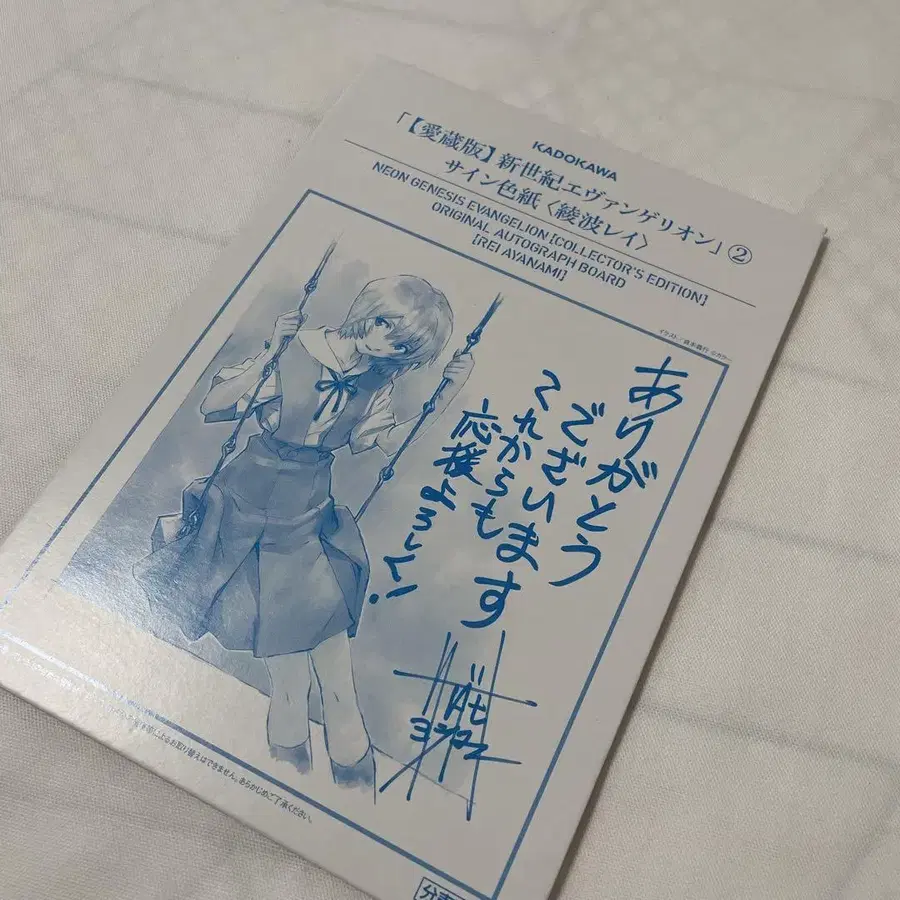 KADOKAWA
「【愛蔵版】新世紀エヴァンゲリオン」②
サイン色紙〈綾波レイ〉
NEON GENESIS EVANGELION [COLLECTOR'S EDITION]
ORIGINAL AUTOGRAPH BOARD
[REI AYANAMI]
イラスト/貞本義行 ©カラー
ありがとう
ございます
これからも
応援よろしく!
等によるお取り替えはできません。あらかじめご了承ください。